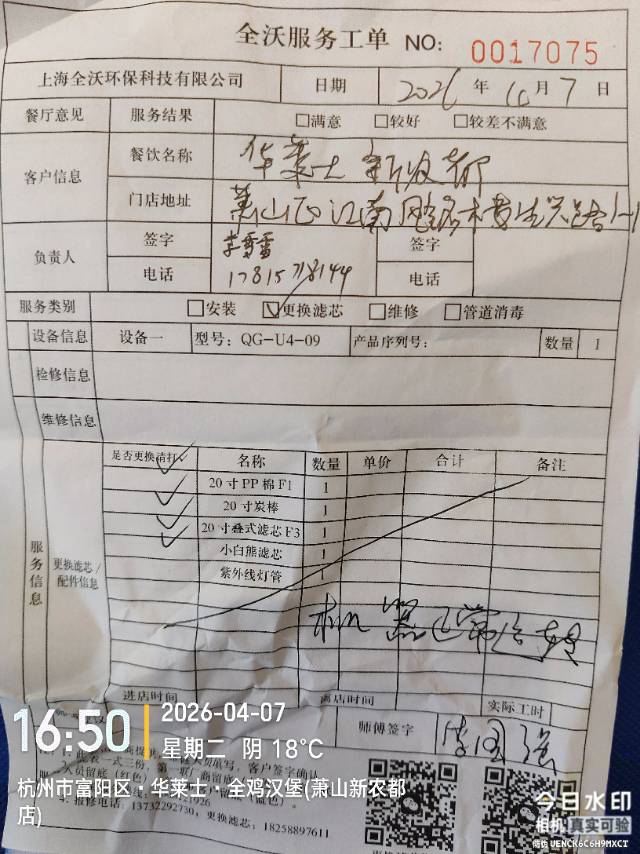 全沃服务工单 NO: 0017075
上海全沃环保科技有限公司 日期 2026 年 月 7 日
餐厅意见 服务结果 □满意 □较好 □较差不满意
客户信息 餐饮名称 华莱士 新农都
门店地址 萧山区江南
负责人 签字 签字
电话 17815718144 电话
服务类别 □安装 ☑更换滤芯 □维修 □管道消毒
设备信息 设备一 型号: QG-U4-09 产品序列号: 数量 1
检修信息
维修信息
服务信息 更换滤芯/配件信息
是否更换请打✓ 名称 数量 单价 合计 备注
✓ 20寸PP棉F1 1
✓ 20寸炭棒 1
✓ 20寸叠式滤芯F3 1
✓ 小白熊滤芯 1
紫外线灯管 1
机器正常
进店时间 离店时间 实际工时
师傅签字 李国强
16:50 2026-04-07
星期二 阴 18°C
杭州市富阳区·华莱士·全鸡汉堡(萧山新农都店)
4. 报修电话: 13732292730, 更换滤芯: 18258897611
今日水印
相机 真实可验
防伪 UENCK6C6H9MXCT